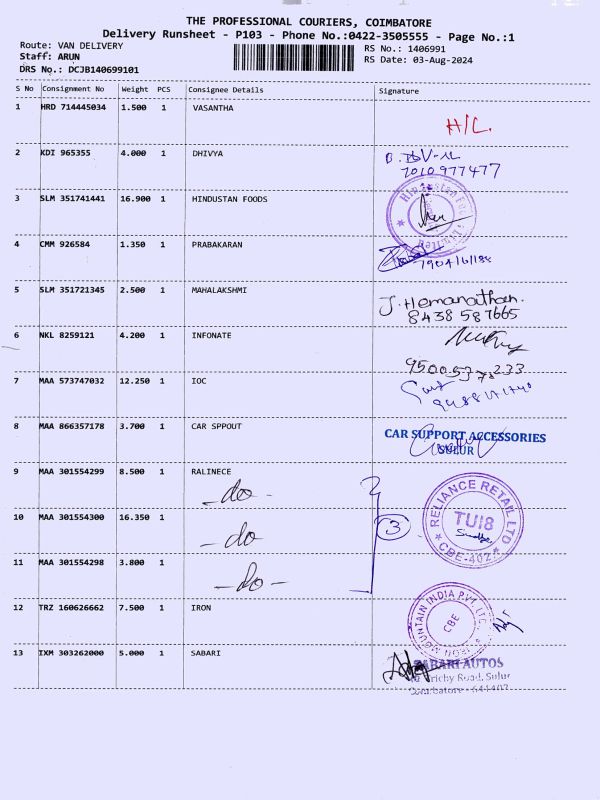 THE PROFESSIONAL COURIERS, COIMBATORE
Delivery Runsheet - P103 - Phone No.:0422-3505555 - Page No.:1
Route: VAN DELIVERY
RS No.: 1406991
Staff: ARUN
RS Date: 03-Aug-2024
DRS No.: DCJB140699101
S No Consignment No Weight PCS Consignee Details Signature
1 HRD 714445034 1.500 1 VASANTHA
H/L.
2 KDI 965355 4.000 1 DHIVYA
7010977477
3 SLM 351741441 16.900 1 HINDUSTAN FOODS
Limited
4 CMM 926584 1.350 1 PRABAKARAN
5 SLM 351721345 2.500 1 MAHALAKSHMI
J. Hemanathan.
8438587665
6 NKL 8259121 4.200 1 INFONATE
7 MAA 573747032 12.250 1 IOC
8 MAA 866357178 3.700 1 CAR SPPOUT
CAR SUPPORT ACCESSORIES
SULUR
9 MAA 301554299 8.500 1 RALINECE
- do -
RELIANCE RETAIL LTD
TUI8
CBE-402
3
10 MAA 301554300 16.350 1
- do
11 MAA 301554298 3.800 1
- Do -
12 TRZ 160626662 7.500 1 IRON
IRON MOUNTAIN INDIA PVT. LTD.
CBE
13 IXM 303262000 5.000 1 SABARI
SABARI AUTOS
Trichy Road, Sulur
Coimbatore - 641402